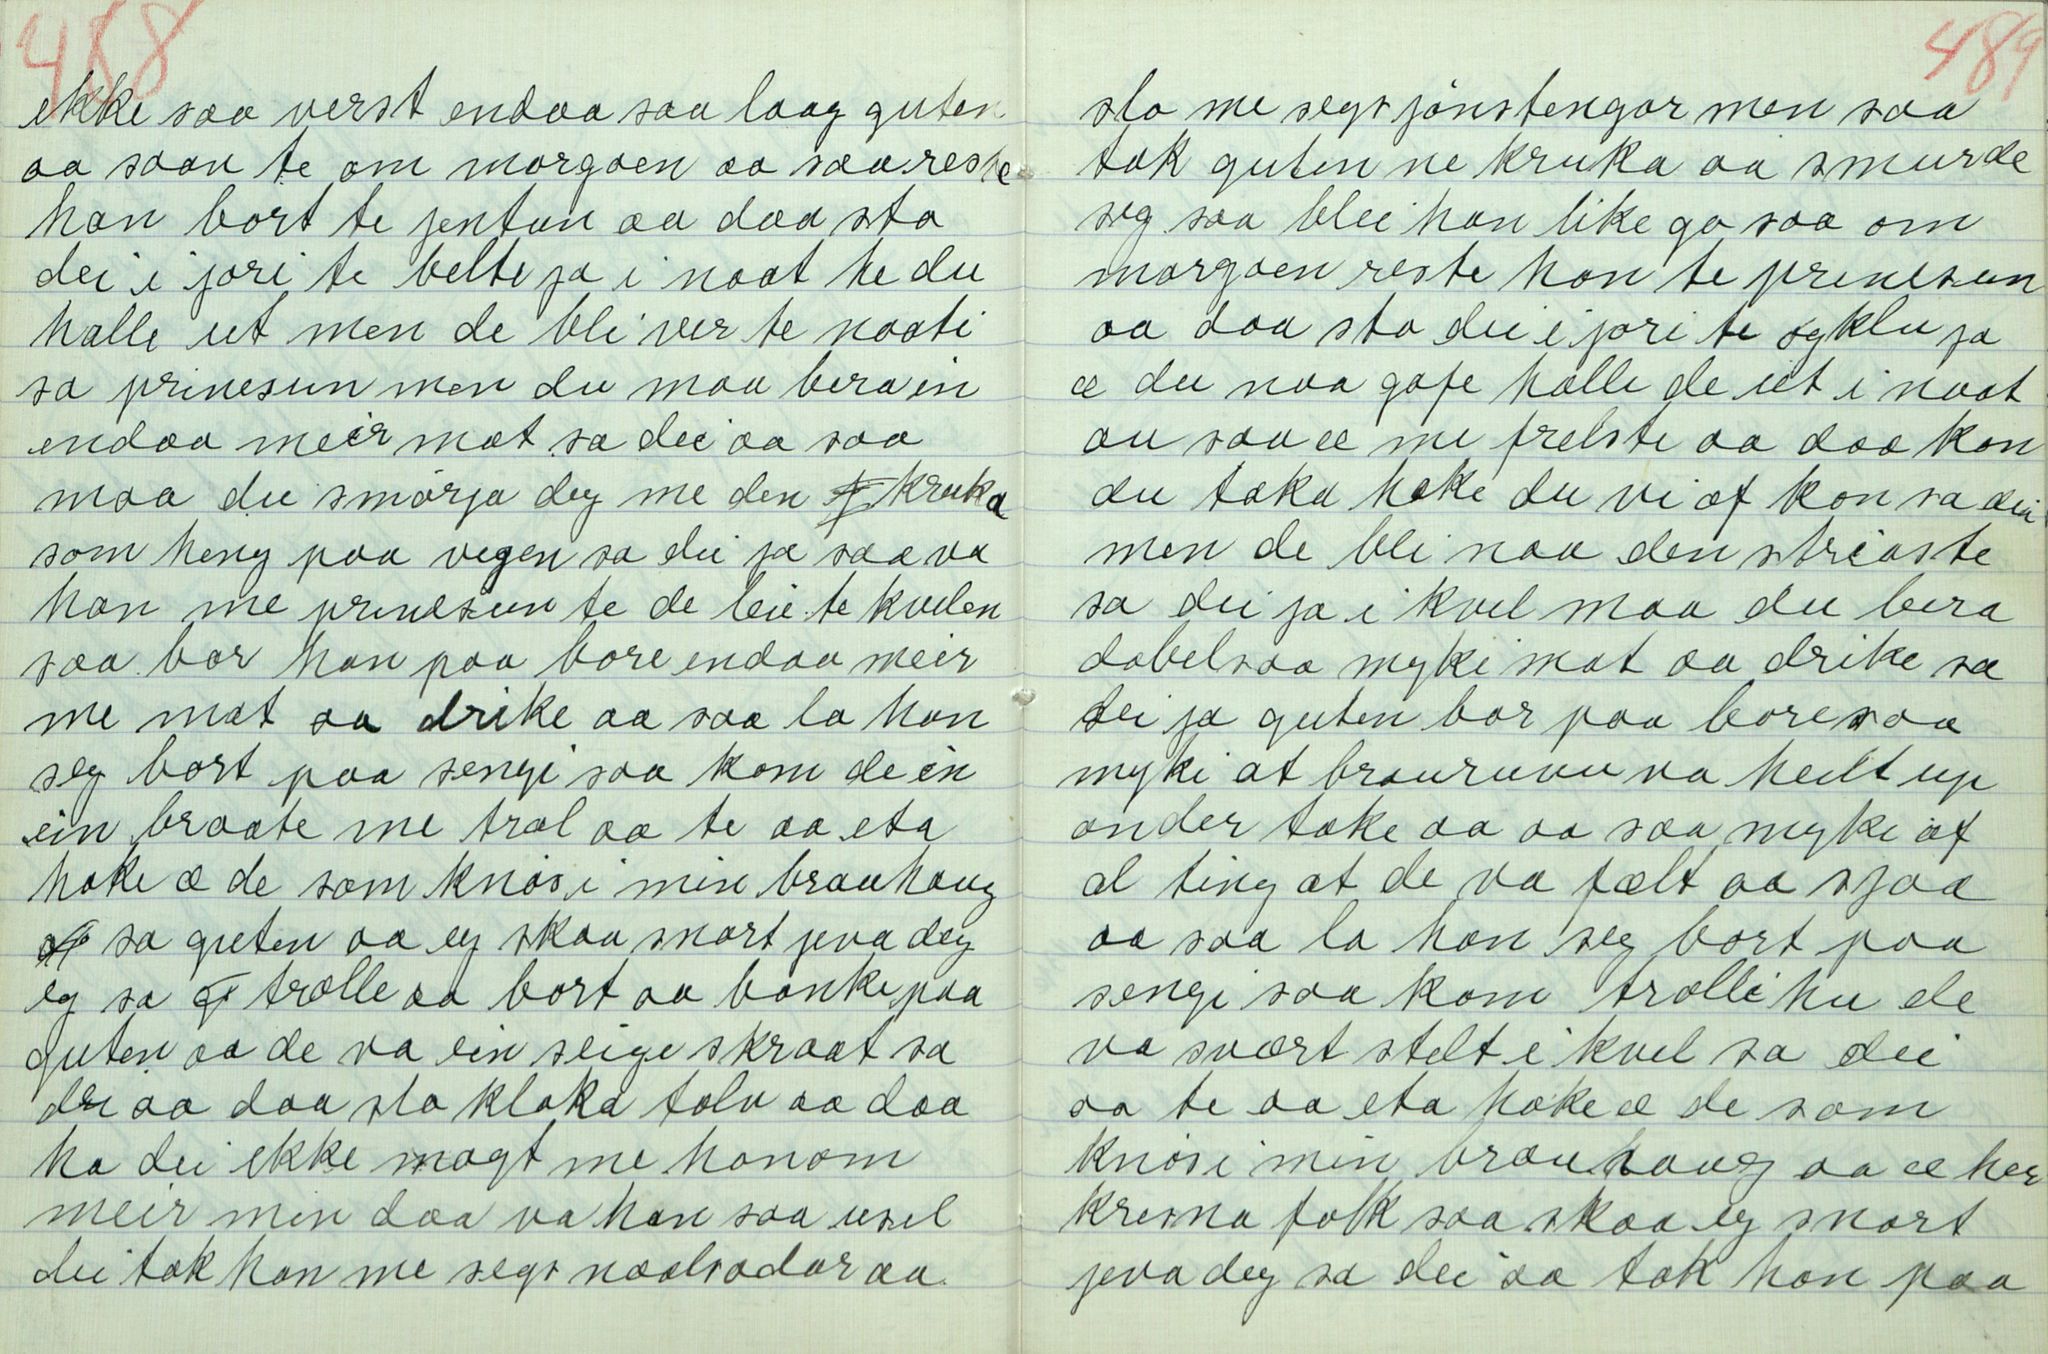 488
ekke saa verst endaa saa laag guten
aa saav te om morgaen aa saa reste
han bort te jentun aa daa sto
dei i jori te belte ja i naat he du
halle ut men de bli ver te naati
sa prinesun men du maa bera in
endaa meir mat sa dei aa saa
maa du smørja deg me den kruka
som heng paa vegen sa dei ja saa va
han me prinesun te de lei te kvelen
saa bar han paa bore endaa meir
me mat aa drike aa saa la han
seg bort paa sengi saa kom de in
ein braate me tral aa te aa eta
hake æ de som knøs i min brauhaug
sa guten aa eg skaa snart jeva deg
eg sa trolle aa bort aa banke paa
guten aa de va ein seige skraat sa
dei aa daa slo klaka tolv aa daa
ha dei ekke magt me honom
meir men daa va han saa usel
dei tok han me segs naalsadar aa
489
slo me segs jønstengor men saa
tok guten ne kruka aa smurde
seg saa blei han like go saa om
morgaen reste han te prinesun
aa daa sto dei i jori te syklu ja
æ du naa gofe halle de ut i naat
au saa æ me frelste aa daa kan
du taka hoke du vi af kon sa dei
men de bli naa den striaste
sa dei ja i kvel maa du bera
dobelsaa myki mat aa drike sa
dei ja guten bar paa bore saa
myki at brauruvu va heilt up
onder take aa aa saa myki af
al ting at de va fælt aa sjaa
aa saa la han seg bort paa
sengi saa kom trolli hu de
va svært stelt i kvel sa dei
aa te aa eta hoke æ de som
knøs i min brauhaug aa æ her
kresna folk saa skaa eg snart
jeva deg sa dei aa tok han paa